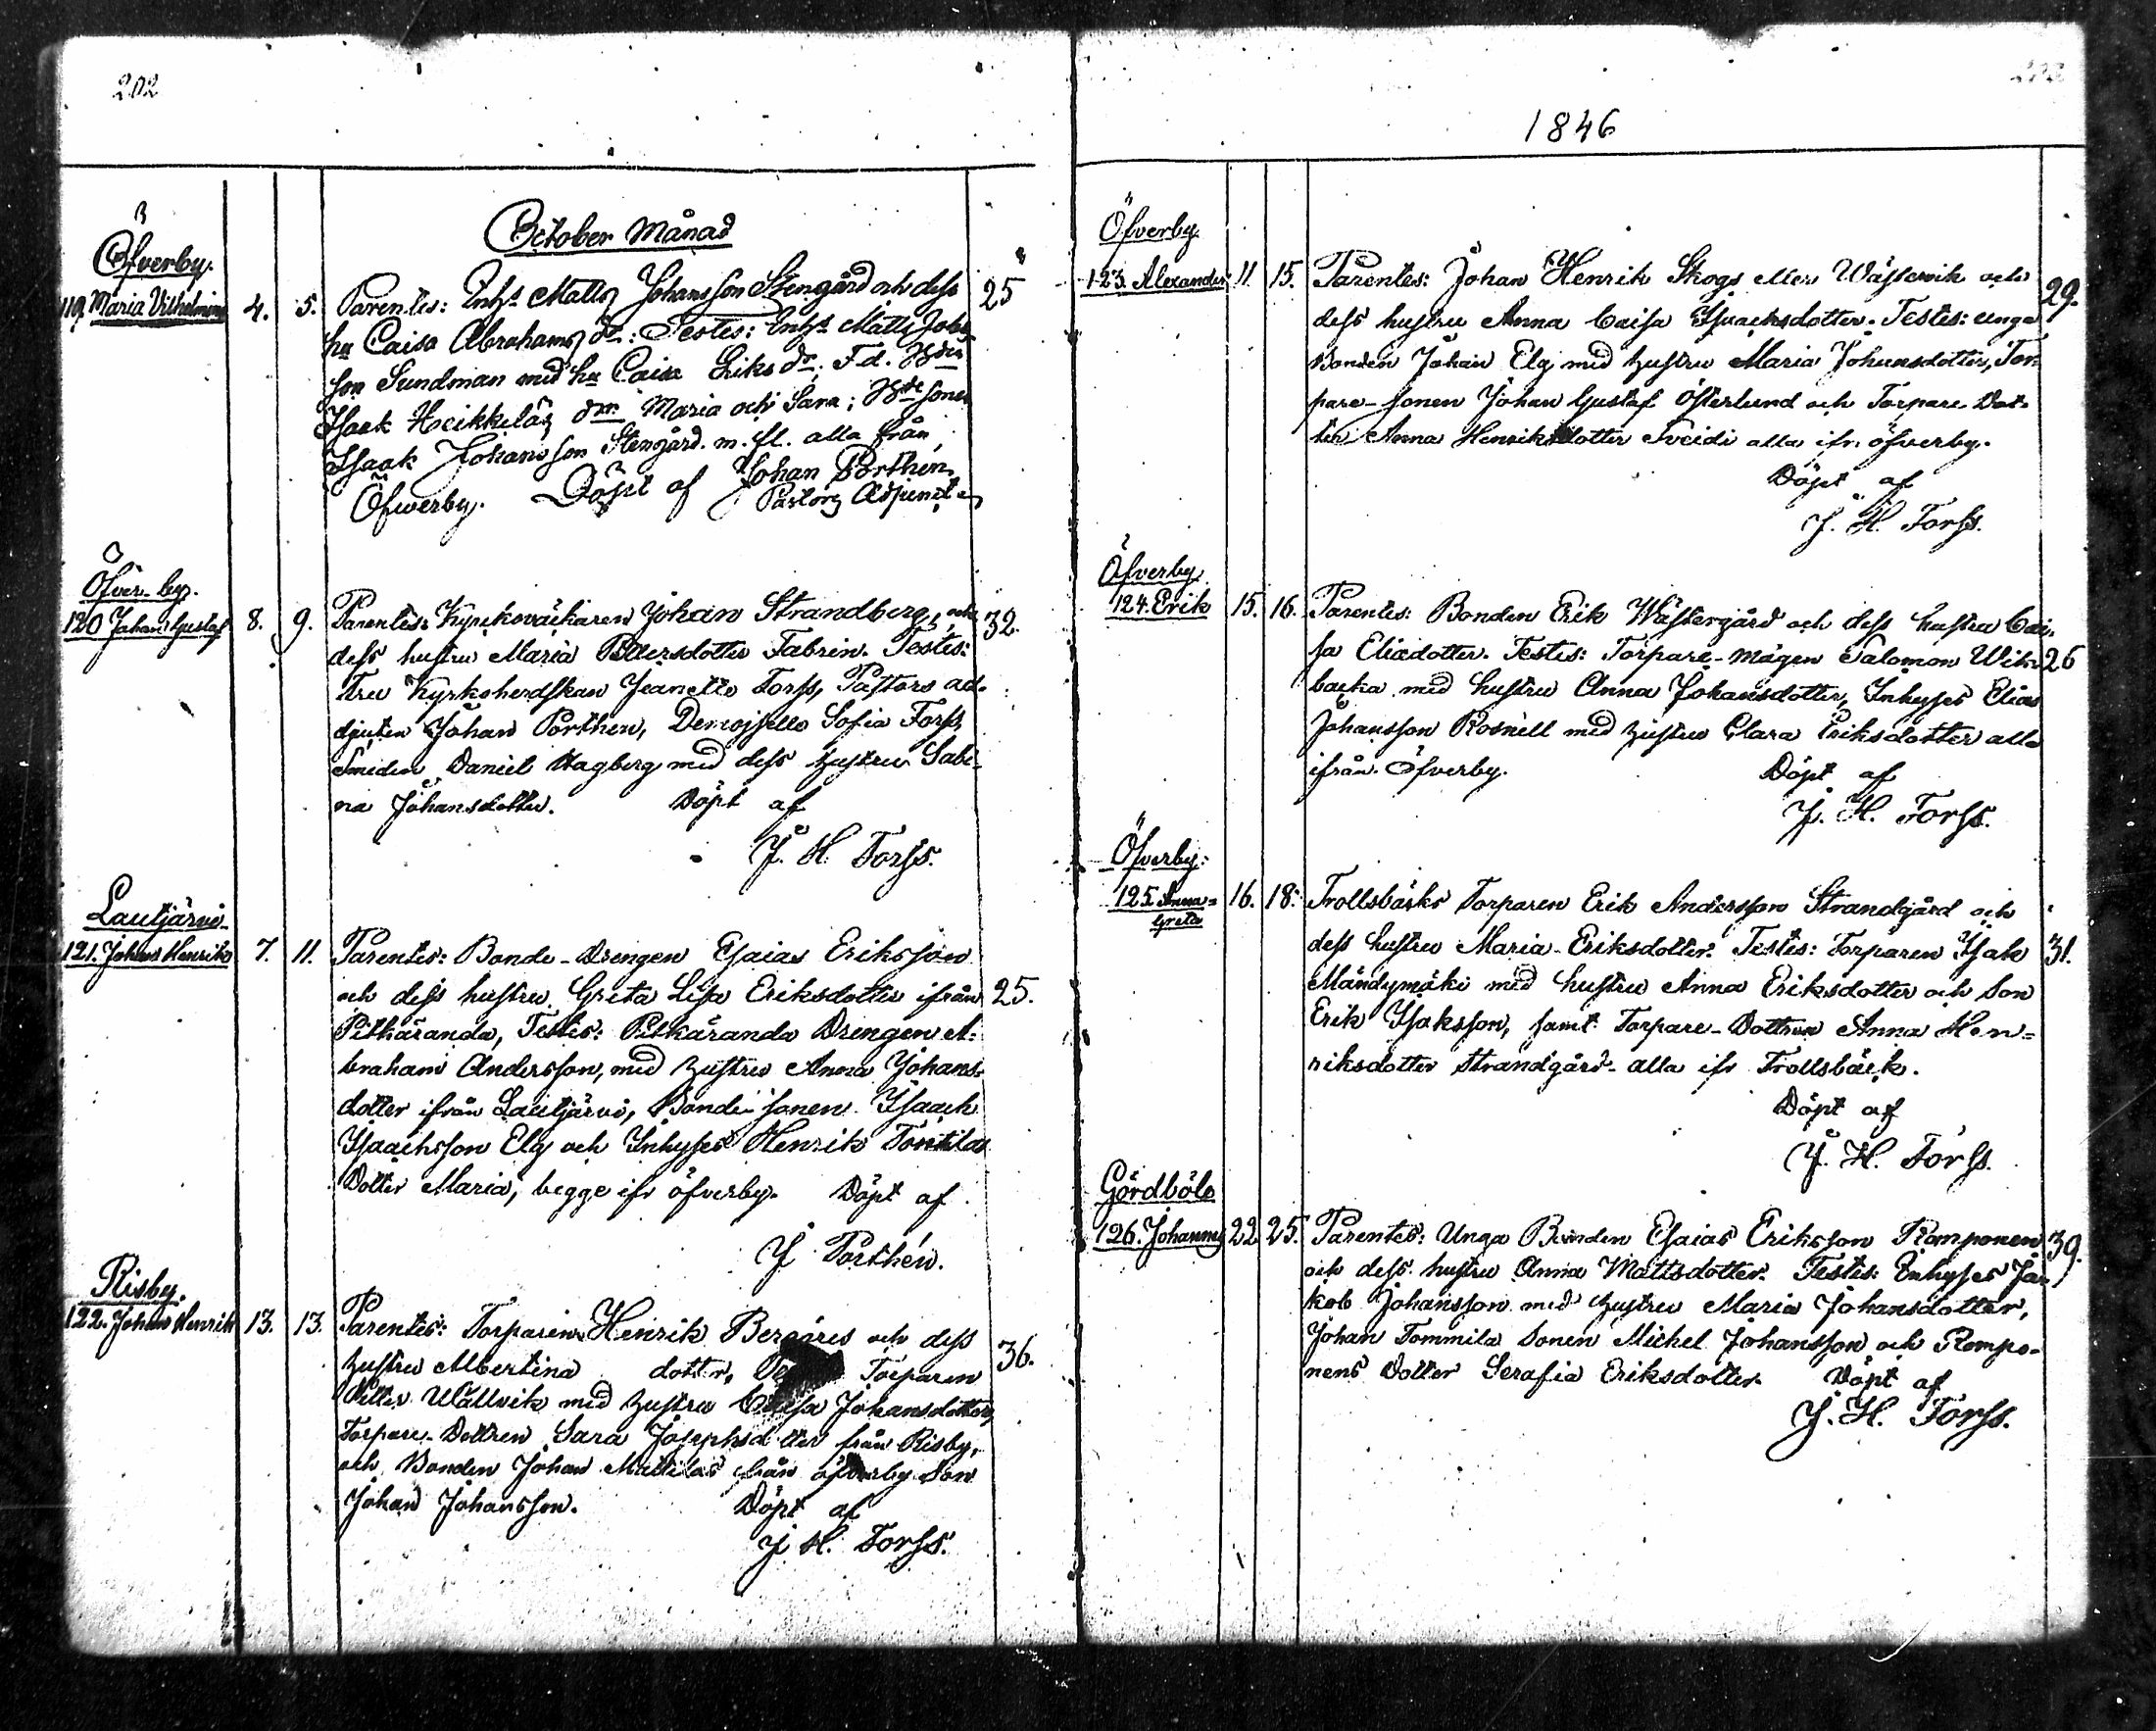 202
October Månad
Öfverby.
119 Maria Vilhelmina 4. 5. Parentes: Inhs Matts Johansson Stengård och dess 25
hu Caisa Abrahams dr: Testes: Inhs Matts Johs
son Sundman med hu Caisa Eriks dr; F.d. Bdn
Isaak Heikkiläs drar Maria och Sara; Bde sonen
Isaak Johansson Stengård m. fl. alla från
Öfwerby. Döpt af Johan Porthén
Pastors Adjunct
Öfver-by.
120 Johan Gustaf 8. 9. Parentes: Kyrkoväktaren Johan Strandberg, och 32.
dess hustru Maria Pettersdotter Fabrin. Testes:
Fru Kyrkoherdskan Jeanette Forss, Pastors ad-
djuten Johan Porthen, Demoiselle Sofia Forss,
Smeden Daniel Hagberg med dess hustru Sabi-
na Johansdotter. Döpt af
J. H. Forss.
Lautjärvi
121. Johan Henrik 7. 11. Parentes: Bonde-Drengen Esaias Eriksson
och dess hustru Greta Lisa Eriksdotter ifrån 25.
Pitkäranda, Testes: Pitkäranda Drengen A-
braham Andersson, med hustru Anna Johans-
dotter ifrån Lautjärvi, Bonde sonen Isaach
Isaachsson Elg och Inhyses Henrik Tontilas
Dotter Maria, begge ifr öfverby. Döpt af
J Porthén.
Risby.
122. Johan Henrik 13. 13. Parentes: Torparen Henrik Bergäres och dess 36.
hustru Albertina dotter, Torparen
Petter Wällvik med hustru Caisa Johansdotter,
Torpare-Dottren Sara Josephsdotter från Risby,
och Bonden Johan Mattilas från öfverby Son
Johan Johansson. Döpt af
J H. Forss.
1846
Öfverby
123. Alexander 11. 15. Parentes: Johan Henrik Skogs eller Wästervik och 29.
dess hustru Anna Caisa Isaachsdotter. Testes: unga
Bonden Johan Elg med hustru Maria Johansdotter, Tor-
pare-sonen Johan Gustaf Österlund och Torpare Dot-
ter Anna Henriksdotter Sveidi alla ifr. öfverby.
Döpt af
J. H. Forss.
Öfverby
124. Erik 15. 16. Parentes: Bonden Erik Wästergård och dess hustru Cai-
sa Eliædotter. Testes: Torpare-mågen Salomon Wik- 26
backa med hustru Anna Johansdotter, Inhyses Elias
Johansson Rosnell med hustru Clara Eriksdotter alla
ifrån Öfverby. Döpt af
J. H. Forss.
Öfverby:
125. Anna= 16. 18. Trollsbäcks Torparen Erik Andersson Strandgård och
Greta
dess hustru Maria Eriksdotter. Testes: Torparen Isak 31.
Mändymäki med hustru Anna Eriksdotter och Son
Erik Isaksson, samt Torpare-Dottren Anna Hen=
riksdotter Strandgård alla ifr Trollsbäck.
Döpt af
J. H. Forss.
Gördböle
126. Johannes 22 25. Parentes: Unga Bonden Esaias Eriksson Romponen 39.
och dess hustru Anna Mattsdotter. Testes: Inhyses Ja-
kob Johansson med hustru Maria Johansdotter,
Johan Tommila Sonen Michel Johansson och Rompo-
nens Dotter Serafia Eriksdotter. Döpt af
J. H. Forss.